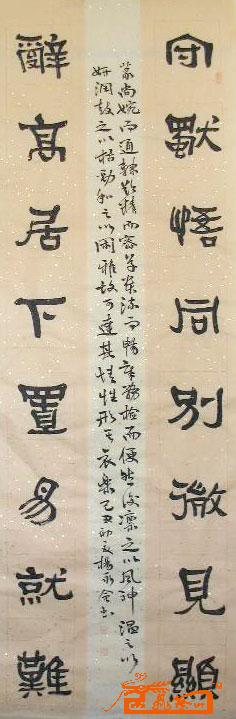 守默悟同別微見顯
篆尚婉而通隸欲精而密草貴流而暢章務檢而便然後凜之以風神溫之以
妍潤鼓之以枯勁和之以閑雅故可達其情性形其哀樂己丑初夏楊永書
辭高居下置易就難